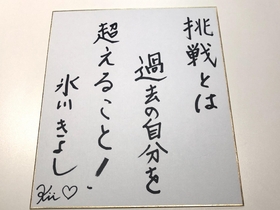 挑戦とは
過去の自分を
超えること!
氷川きよし
Kii♡